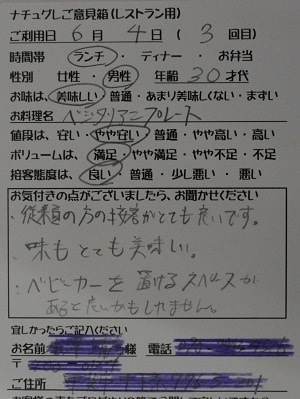 ナチュグレご意見箱(レストラン用)
ご利用日 6 月 4 日( 3 回目)
時間帯 ランチ・ディナー・お弁当
性別 女性・男性 年齢 30才代
お味は、美味しい・普通・あまり美味しくない・まずい
お料理名 ベジタリアンプレート
値段は、安い・やや安い・普通・やや高い・高い
ボリュームは、満足・やや満足・やや不足・不足
接客態度は、良い・普通・少し悪い・悪い
お気付きの点がございましたら、お聞かせください
・従業員の方の接客がとても良いです。
・味もとても美味しい。
・ベビーカーを置けるスペースが
あると良いかもしれません。
宜しかったらご記入ください
お名前 様 電話
〒
ご住所